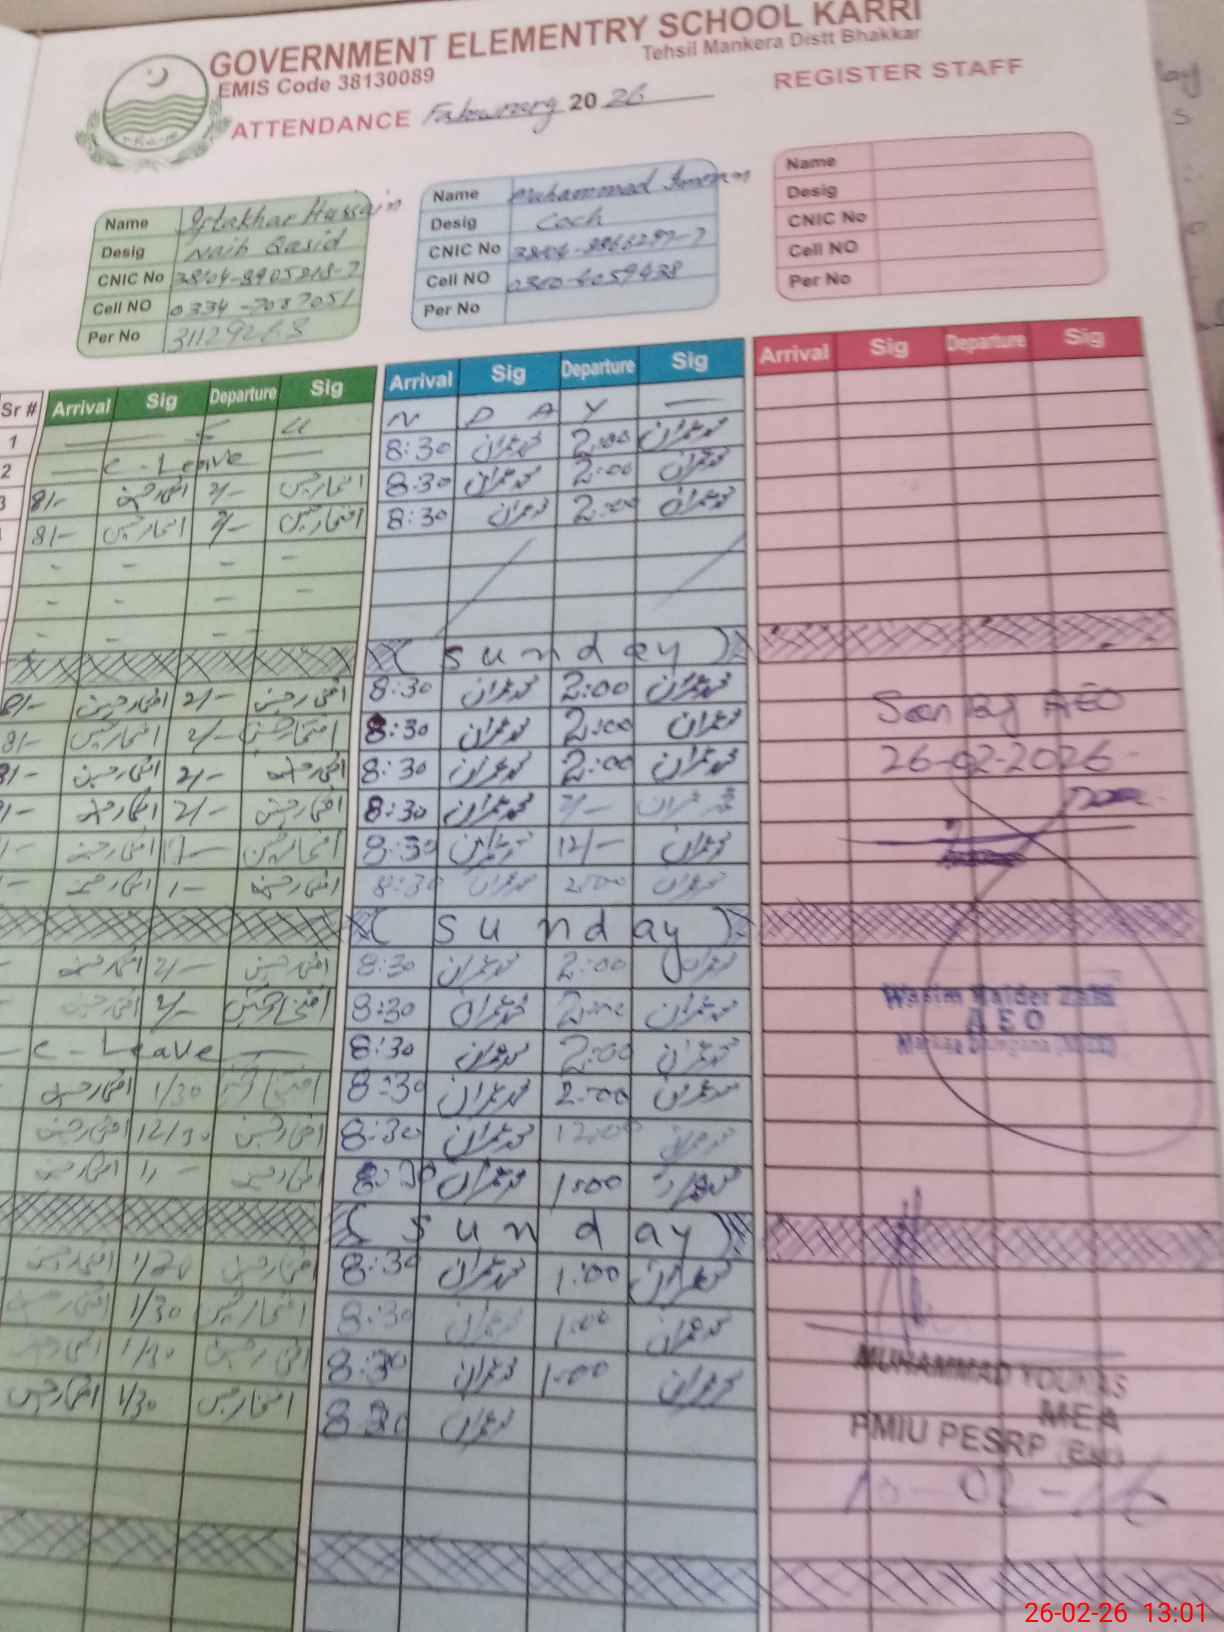 GOVERNMENT ELEMENTRY SCHOOL KARRI
Tehsil Mankera Distt Bhakkar
EMIS Code 38130089
ATTENDANCE 20 26 REGISTER STAFF
Name Iftakhar Hussain
Desig Naib Qasid
CNIC No
Cell NO 0334-7087051
Per No
Name Muhammad Imran
Desig Coch
CNIC No
Cell NO
Per No
Name
Desig
CNIC No
Cell NO
Per No
Sr # Arrival Sig Departure Sig Arrival Sig Departure Sig Arrival Sig Departure Sig
1 N D A Y
2 C-Leave 8:30 محمد عمران 2:00 محمد عمران
3 8/- افتخار حسین 2/- افتخار حسین 8:30 محمد عمران 2:00 محمد عمران
8/- افتخار حسین 2/- افتخار حسین 8:30 محمد عمران 2:00 محمد عمران
(Sunday)
8/- افتخار حسین 2/- افتخار حسین 8:30 محمد عمران 2:00 محمد عمران
8/- افتخار حسین 2/- افتخار حسین 8:30 محمد عمران 2:00 محمد عمران
8/- افتخار حسین 2/- افتخار حسین 8:30 محمد عمران 2:00 محمد عمران
افتخار حسین 2/- افتخار حسین 8:30 محمد عمران 2/- محمد عمران
افتخار حسین افتخار حسین 8:30 محمد عمران 12/- محمد عمران
افتخار حسین 1- افتخار حسین 8:30 محمد عمران 2:00 محمد عمران
(Sunday)
افتخار حسین 2/- افتخار حسین 8:30 محمد عمران 2:00 محمد عمران
افتخار حسین 2/- افتخار حسین 8:30 محمد عمران 2:00 محمد عمران
C-Leave 8:30 محمد عمران 2:00 محمد عمران
افتخار حسین 1/30 افتخار حسین 8:30 محمد عمران 2:00 محمد عمران
افتخار حسین 12/30 افتخار حسین 8:30 محمد عمران 12:00 محمد عمران
افتخار حسین 1/- افتخار حسین 8:30 محمد عمران 1:00 محمد عمران
(Sunday)
افتخار حسین افتخار حسین 8:30 محمد عمران 1:00 محمد عمران
افتخار حسین 1/30 افتخار حسین 8:30 محمد عمران 1:00 محمد عمران
افتخار حسین 1/30 افتخار حسین 8:30 محمد عمران 1:00 محمد عمران
افتخار حسین 1/30 افتخار حسین 8:30 محمد عمران
Seen By AEO
26-02-2026
Wasim Haider
AEO
MUHAMMAD YOUNAS
MEA
PMIU PESRP
26-02-26 13:01